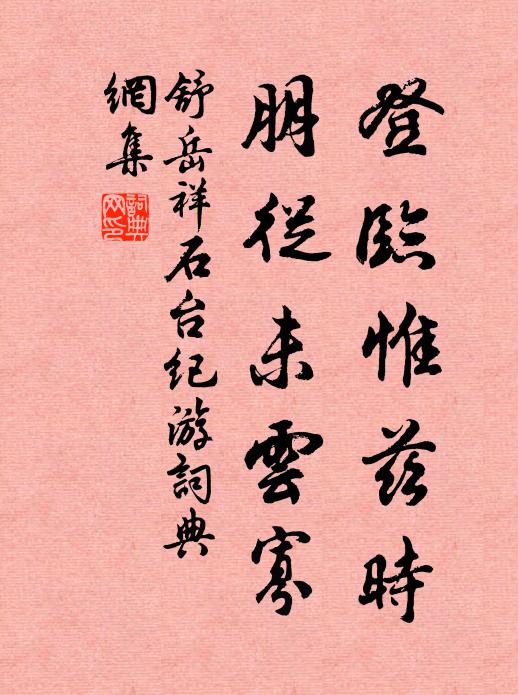 登臨惟茲時
朋從未雲寡
舒岳祥石台纪游詞典
網集
詞典網印